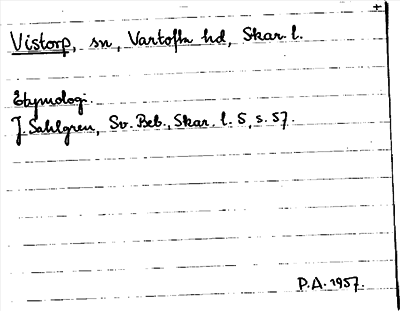 +
Vistorp, sn, Vartofta hd, Skar. l.
Etymologi.
J. Sahlgren, Sv. Beb., Skar. l. 5, s. 57.
P.A. 1957.